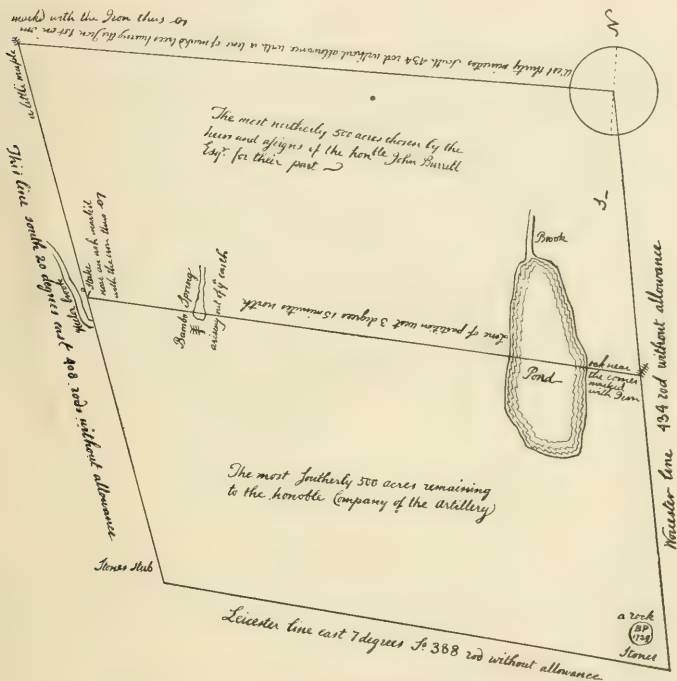 marked with the Iron thus
West thirty minutes South 434 rod without allowance with a line of marked trees
N
a little maple
The most northerly 500 acres chosen by the
heirs and assigns of the honble John Burrell
Esqr. for their part
S
This line south 20 degrees east 408 rods without allowance
Stake
near an ash marked
with the iron thus
Bambo Spring
arising out of ye earth
Line of partition west 3 degrees 15 minutes north
Brook
Pond
oak near
the corner
marked
with Iron
Worcester line 434 rod without allowance
The most Southerly 500 acres remaining
to the honoble Company of the Artillery
Stones Stub
Leicester line east 7 degrees So 388 rod without allowance
a rock
BP
1729
Stones